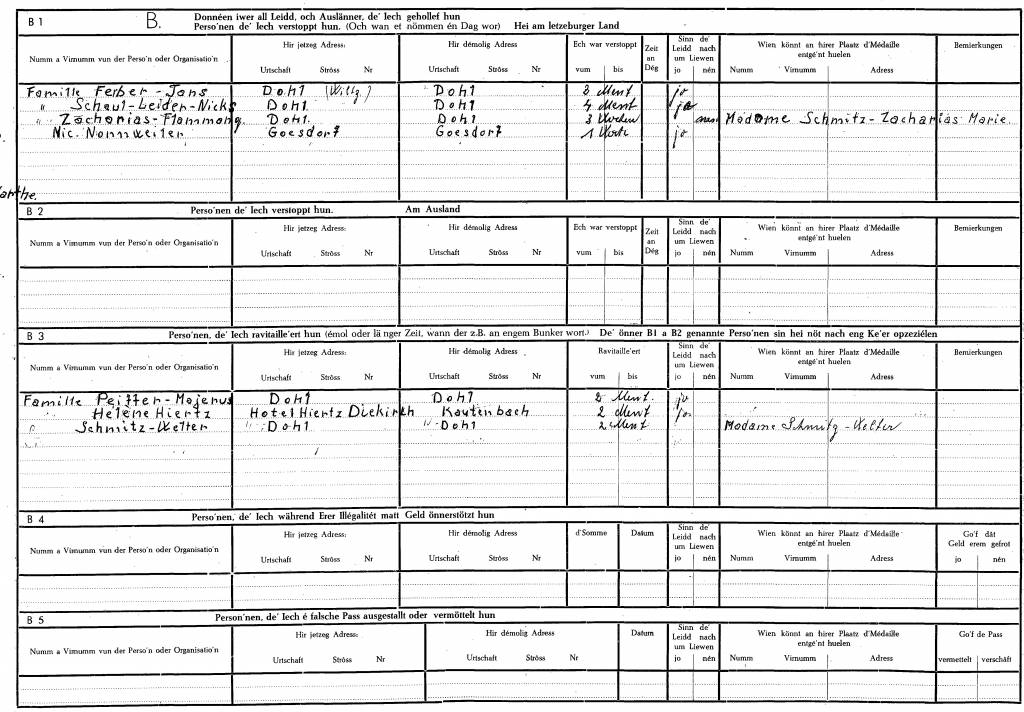 B 1 B. Donnéen iwer all Leidd, och Auslänner, de' Iech gehollef hun
Perso'nen de' Iech verstoppt hun. (Och wan et nömmen én Dag wor) Hei am letzeburger Land
Numm a Virnumm vun der Perso'n oder Organisatio'n Hir jetzeg Adress: Hir démolig Adress Ech war verstoppt Zeit an Dég Sinn de' Leidd nach um Liewen Wien könnt an hirer Plaatz d'Médaille entgé'nt huelen Bemierkungen
Urtschaft Ströss Nr Urtschaft Ströss Nr vum bis jo nén Numm Virnumm Adress
Famille Ferber - Jans Dohl (Wiltz.) Dohl 3 Ment jo
" Schaul-Leider-Nicks Dohl Dohl 4 Ment jo
" Zacharias-Flammang Dohl. Dohl 3 Wochen nén Madame Schmitz-Zacharias Marie.
Nic. Nonnweiler Goesdorf Goesdorf 1 Woch jo
arthe.
B 2 Perso'nen de' Iech verstoppt hun. Am Ausland
Numm a Virnumm vun der Perso'n oder Organisatio'n Hir jetzeg Adress: Hir démolig Adress Ech war verstoppt Zeit an Dég Sinn de' Leidd nach um Liewen Wien könnt an hirer Plaatz d'Médaille entgé'nt huelen Bemierkungen
Urtschaft Ströss Nr Urtschaft Ströss Nr vum bis jo nén Numm Virnumm Adress
B 3 Perso'nen, de' Iech ravitaille'ert hun (émol oder länger Zeit, wann der z.B. an engem Bunker wort.) De' önner B1 a B2 genannte Perso'nen sin hei nöt nach eng Ke'er opzeziélen
Numm a Virnumm vun der Perso'n oder Organisatio'n Hir jetzeg Adress: Hir démolig Adress Ravitaille'ert Sinn de' Leidd nach um Liewen Wien könnt an hirer Plaatz d'Médaille entgé'nt huelen Bemierkungen
Urtschaft Ströss Nr Urtschaft Ströss Nr vum bis jo nén Numm Virnumm Adress
Famille Peiffer-Majerus Dohl Dohl 2 Ment. jo
Helene Hiertz Hotel Hiertz Diekirch Kautenbach 2 Ment jo
" Schmitz-Welter " Dohl " Dohl 2 Ment Madame Schmitz-Welter
B 4 Perso'nen, de' Iech während Erer Illégalitét matt Geld önnerstötzt hun
Numm a Virnumm vun der Perso'n oder Organisatio'n Hir jetzeg Adress: Hir démolig Adress d'Somme Datum Sinn de' Leidd nach um Liewen Wien könnt an hirer Plaatz d'Médaille entgé'nt huelen Go'f dât Geld erem gefrot
Urtschaft Ströss Nr Urtschaft Ströss Nr jo nén Numm Virnumm Adress jo nén
B 5 Person'nen, de' Iech é falsche Pass ausgestallt oder vermöttelt hun
Numm a Virnumm vun der Perso'n oder Organisatio'n Hir jetzeg Adress: Hir démolig Adress Datum Sinn de' Leidd nach um Liewen Wien könnt an hirer Plaatz d'Médaille entgé'nt huelen Go'f de Pass
Urtschaft Ströss Nr Urtschaft Ströss Nr jo nén Numm Virnumm Adress vermettelt verschâft